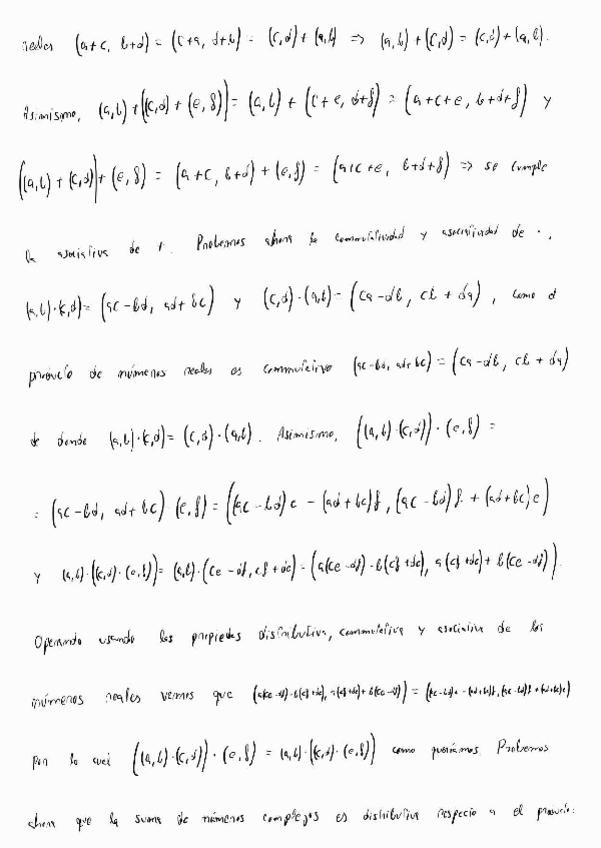 reales (a+c, b+d) = (c+a, d+b) = (c,d) + (a,b) => (a,b) + (c,d) = (c,d) + (a,b).
Asimismo, (a,b) + ((c,d) + (e,f)) = (a,b) + (c+e, d+f) = (a+c+e, b+d+f) y
((a,b) + (c,d)) + (e,f) = (a+c, b+d) + (e,f) = (a+c+e, b+d+f) => se cumple
la asociativa de +. Probemos ahora la conmutatividad y asociatividad de ·,
(a,b)·(c,d) = (ac-bd, ad+bc) y (c,d)·(a,b) = (ca-db, cb+da), como el
producto de números reales es conmutativo (ac-bd, ad+bc) = (ca-db, cb+da)
de donde (a,b)·(c,d) = (c,d)·(a,b). Asimismo, ((a,b)·(c,d))·(e,f) =
= (ac-bd, ad+bc)·(e,f) = ((ac-bd)e - (ad+bc)f, (ac-bd)f + (ad+bc)e)
y (a,b)·((c,d)·(e,f)) = (a,b)·(ce-df, cf+de) = (a(ce-df)-b(cf+de), a(cf+de)+b(ce-df)).
Operando usando las propiedes distributiva, conmutativa y asociativa de los
números reales vemos que (a(ce-df)-b(cf+de), a(cf+de)+b(ce-df)) = ((ac-bd)e-(ad+bc)f, (ac-bd)f+(ad+bc)e)
por lo cual ((a,b)·(c,d))·(e,f) = (a,b)·((c,d)·(e,f)) como queríamos. Probemos
ahora que la suma de números complejos es distributiva respecto a el producto: